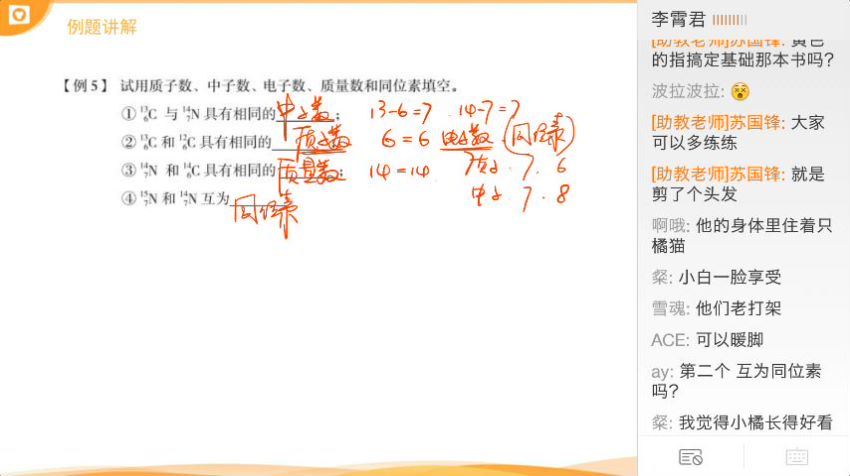 例题讲解
【例5】 试用质子数、中子数、电子数、质量数和同位素填空。
① ¹³₆C 与 ¹⁴₇N 具有相同的中子数; 13-6=7 14-7=7
② ¹³₆C 和 ¹²₆C 具有相同的质子数 6=6 电子数 (同位素)
③ ¹⁴₇N 和 ¹⁴₆C 具有相同的质量数; 14=14 质子 7. 6
中子 7. 8
④ ¹⁵₇N 和 ¹⁴₇N 互为同位素
李霄君
[助教老师]苏国锋: 黄色
的指搞定基础那本书吗?
波拉波拉:
[助教老师]苏国锋: 大家
可以多练练
[助教老师]苏国锋: 就是
剪了个头发
啊哦: 他的身体里住着只
橘猫
粲: 小白一脸享受
雪魂: 他们老打架
ACE: 可以暖脚
ay: 第二个 互为同位素
吗?
粲: 我觉得小橘长得好看